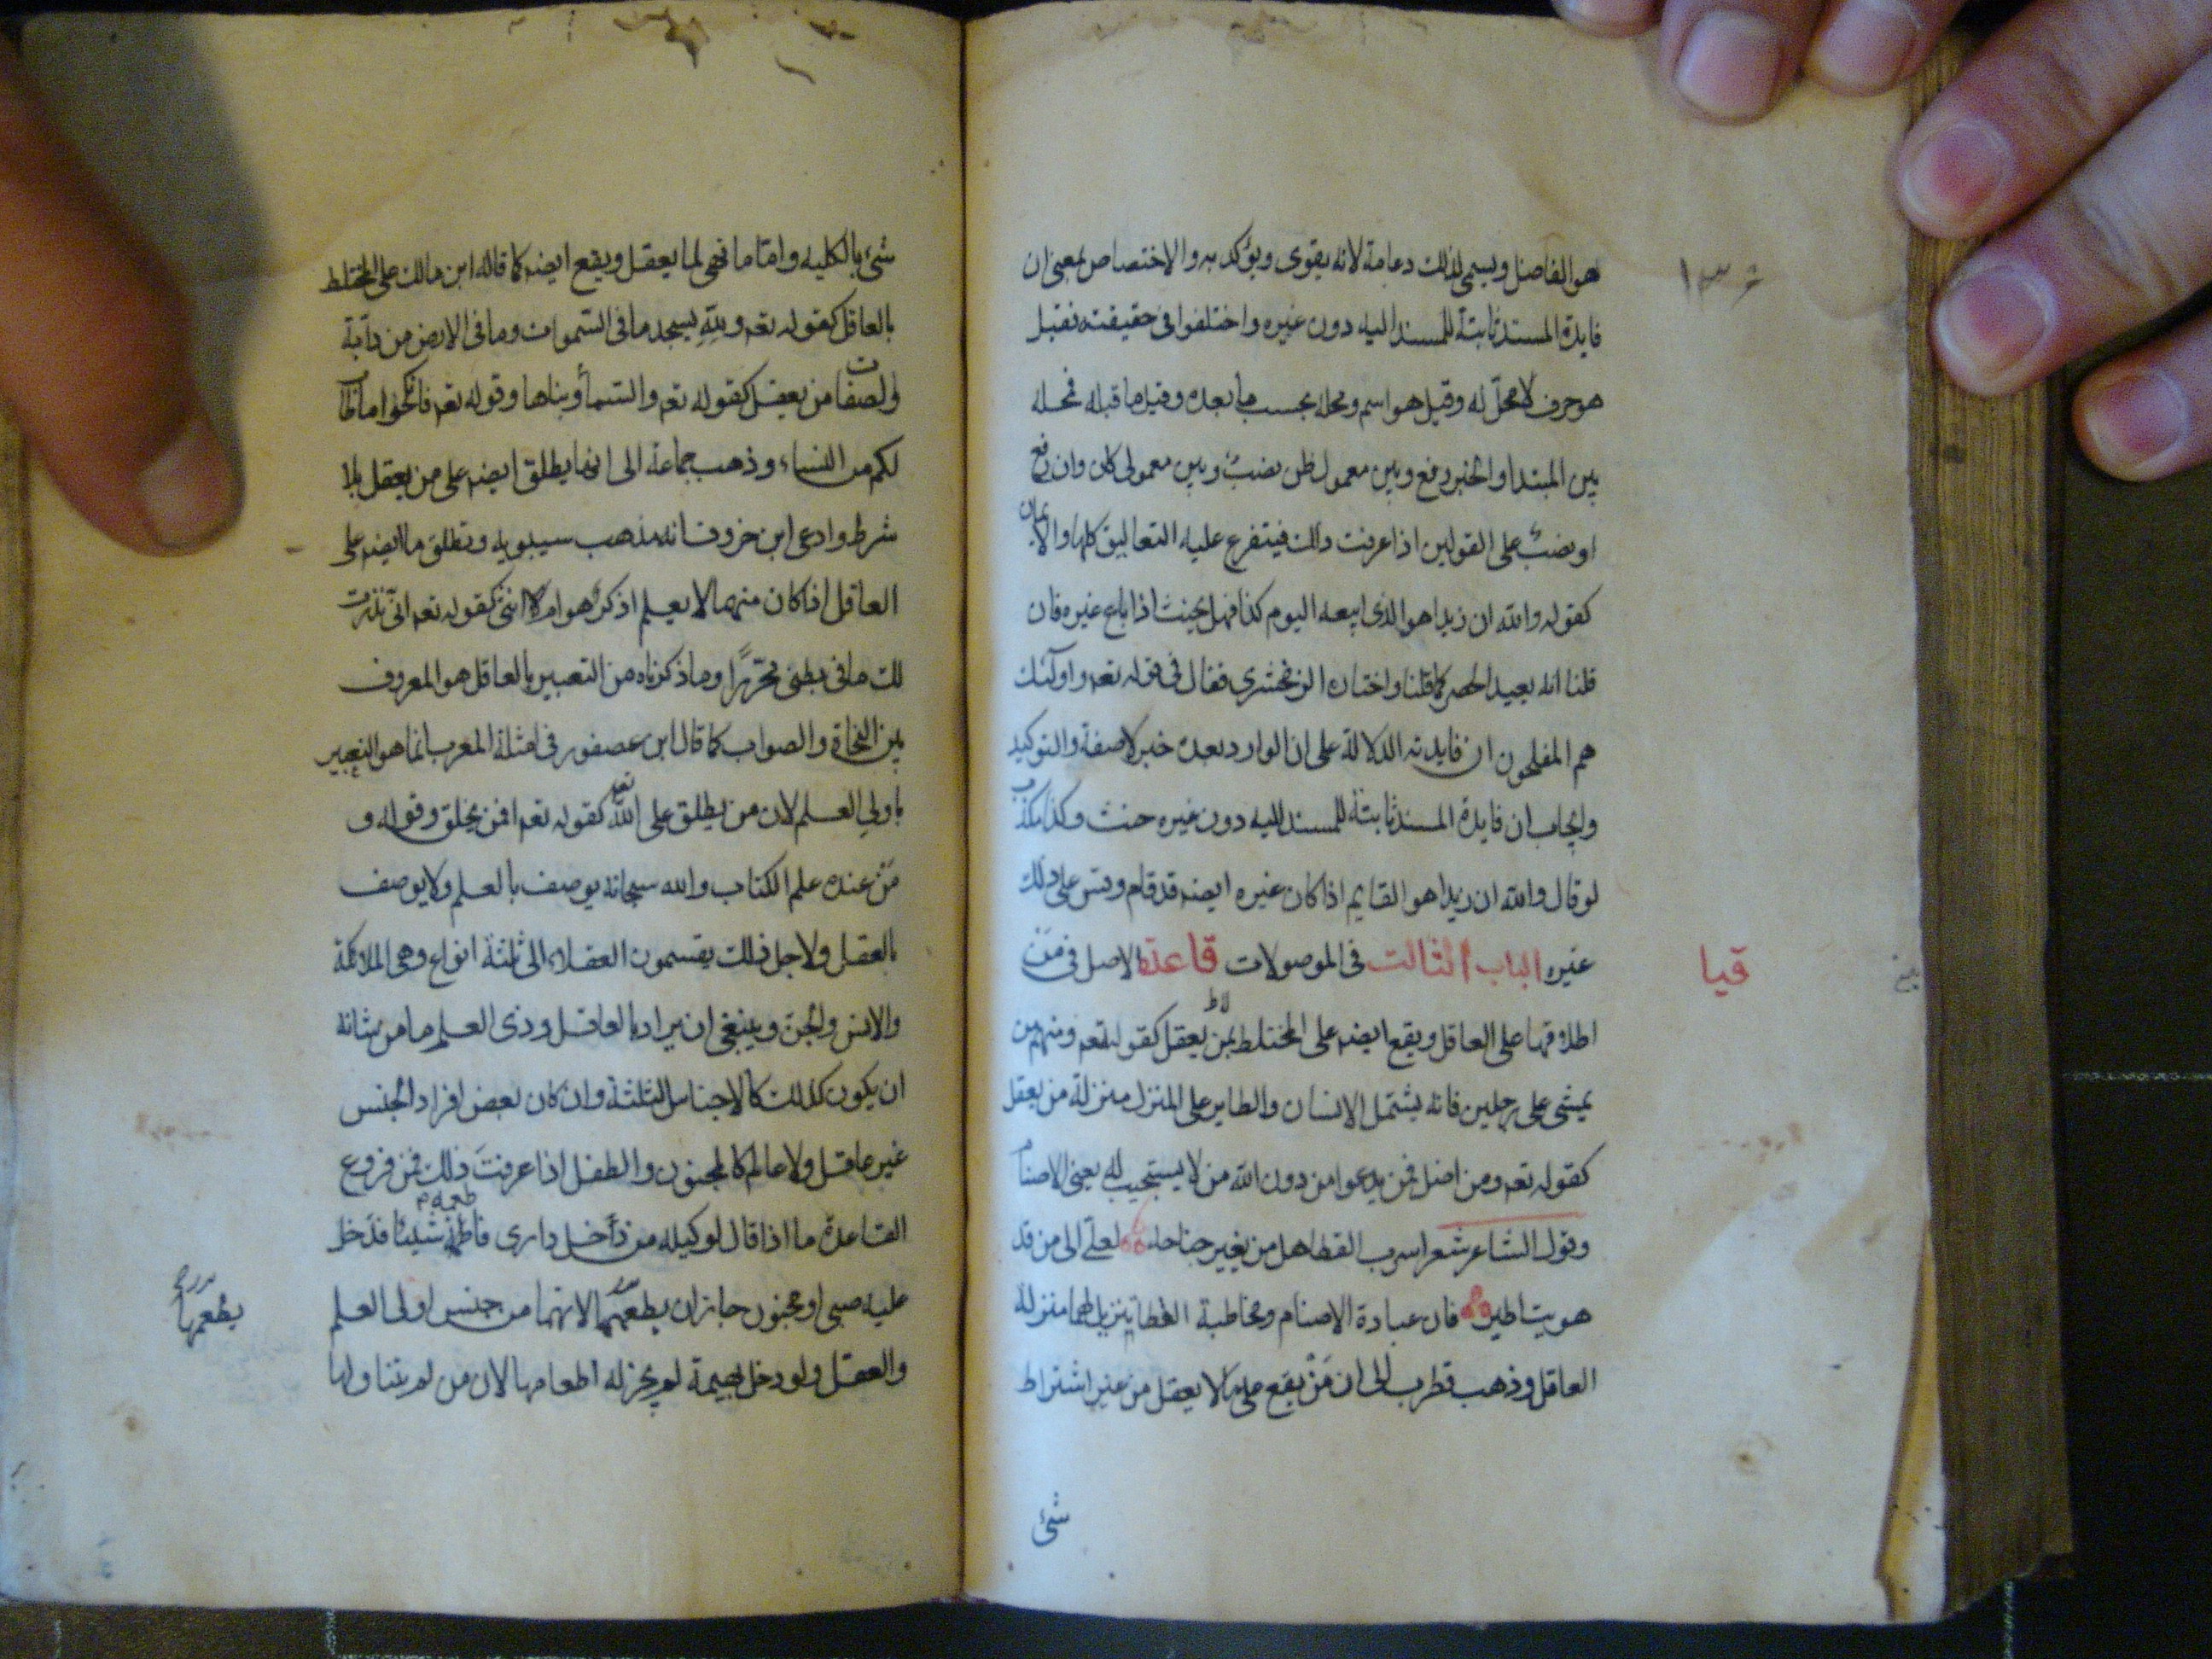 ١٣٤
هو الفاصل ويسمى لذلك دعامة لانه يقوى ويؤكد به والاختصاص بمعنى ان
فايدة المسند ثابتة للمسند اليه دون غيره واختلفوا فى حقيقته فقيل
هو حرف لا محل له وقيل هو اسم ومحله بحسب ما بعده وقيل ما قبله فمحله
بين المبتدا والخبر رفع وبين معمول ظن نصب وبين معمولى كان وان رفع
او نصب على القولين اذا عرفت ذالك فيتفرع عليه التعاليق كلها والايمان
كقوله والله ان زيدا هو الذى ابيعه اليوم كذا فهل يحنث اذا باع غيره فان
قلنا انه يعيد الحصر كما قلنا واختاره الزمخشرى فقال فى قوله تعم واولئك
هم المفلحون ان فايدته الدلالة على ان الوارد بعده خبر لا صفة والتوكيد
وايجاب ان فايدة المسند ثابتة للمسند اليه دون غيره حنث وكذا يكذب
لو قال والله ان زيدا هو القايم اذا كان غيره ايضه قد قام وقس على ذلك
غيره الباب الثالث فى الموصولات قاعدة الاصل فى من
قيا
اطلاقها على العاقل ويقع ايضه على المختلط بمن لا يعقل كقوله تعم ومنهم من
يمشى على رجلين فانه يشتمل الانسان والطاير على المنزل منزلة من يعقل
كقوله تعم ومن اضل ممن يدعوا من دون الله من لا يستجيب له يعنى الاصنام
وقول الشاعر شعر اسرب القطا هل من يعير جناحه لعلى الى من قد
هويت اطير فان عبادة الاصنام ومخاطبة القطا ينزيل لهما منزلة
العاقل وذهب قطرب الى ان من يقع على ما لا يعقل من غير اشتراط
شئ
شئ بالكليه واما ما فهى لما يعقل ويقع ايضه كما قاله ابن مالك على المختلط
بالعاقل كقوله تعم ولله يسجد ما فى السموات وما فى الارض من دآبة
ولصفات من يعقل كقوله تعم والسمآ وبناها وقوله تعم فانكحوا ما طاب
لكم من النساء وذهب جماعة الى انها يطلق ايضه على من يعقل بلا
شرط وادعى ابن خروف انه مذهب سيبويه وتطلق ما ايضه على
العاقل اذا كان منهما لا يعلم اذكر هو ام انثى كقوله تعم انى نذرت
لك ما فى بطنى محررا وما ذكرناه من التعبير بالعاقل هو المعروف
بين النحاة والصواب كما قال ابن عصفور فى امثلة المعرب انما هو التعبير
باولي العلم لان من يطلق على الله تعم كقوله تعم افمن يخلق وقوله و
من عنده علم الكتاب والله سبحانه يوصف بالعلم ولا يوصف
بالعقل ولاجل ذلك يقسمون العقلاء الى ثلثة انواع وهى الملائكة
والانس والجن وينبغى ان يراد بالعاقل وذى العلم ما من شانه
ان يكون كذلك كالاجناس الثلثة وان كان بعض افراد الجنس
غير عاقل ولا عالم كالمجنون والطفل اذا عرفت ذلك فمن فروع
القاعدة ما اذا قال لوكيله من دخل دارى فاطعمه شيئا فدخل
عليه صبى او مجنون جاز ان يطعمهما لانهما من جنس اولى العلم
يطعمها
والعقل ولو دخل بهيمة لم يجز له اطعامها لان من لم يتناولها